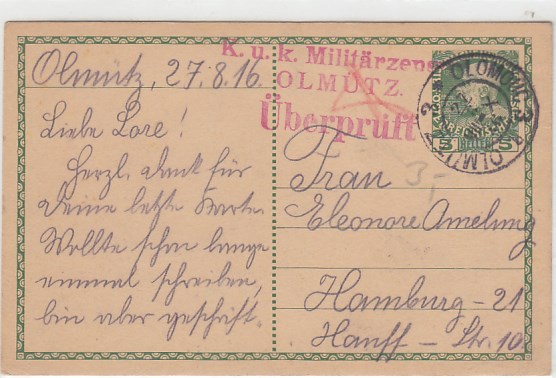 K. u. k. Militärzens
OLMÜTZ.
Überprüft
OLOMOUC 3
OLMÜTZ 3
5 HELLER 5
Olmütz, 27.8.16.
Liebe Lore!
Herzl. Dank für
Deine letzte Karte.
Wollte schon lange
einmal schreiben,
bin aber geschäft.
Frau
Eleonore Amelung
Hamburg-21
Hanff-Str. 10.
3,-